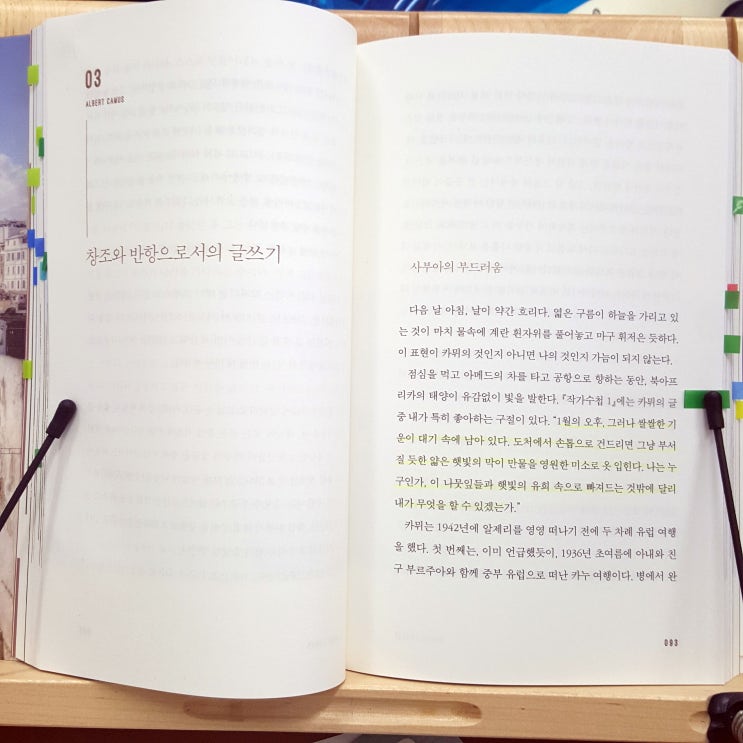 03
ALBERT CAMUS
창조와 반항으로서의 글쓰기
사부아의 부드러움
다음 날 아침, 날이 약간 흐리다. 엷은 구름이 하늘을 가리고 있
는 것이 마치 물속에 계란 흰자위를 풀어놓고 마구 휘저은 듯하다.
이 표현이 카뮈의 것인지 아니면 나의 것인지 가늠이 되지 않는다.
점심을 먹고 아메드의 차를 타고 공항으로 향하는 동안, 북아프
리카의 태양이 유감없이 빛을 발한다. 『작가수첩 1』에는 카뮈의 글
중 내가 특히 좋아하는 구절이 있다. “1월의 오후, 그러나 쌀쌀한 기
운이 대기 속에 남아 있다. 도처에서 손톱으로 건드리면 그냥 부서
질 듯한 얇은 햇빛의 막이 만물을 영원한 미소로 옷 입힌다. 나는 누
구인가, 이 나뭇잎들과 햇빛의 유희 속으로 빠져드는 것밖에 달리
내가 무엇을 할 수 있겠는가.”
카뮈는 1942년에 알제리를 영영 떠나기 전에 두 차례 유럽 여행
을 했다. 첫 번째는, 이미 언급했듯이, 1936년 초여름에 아내와 친
구 부르주아와 함께 중부 유럽으로 떠난 카누 여행이다. 병에서 완
093